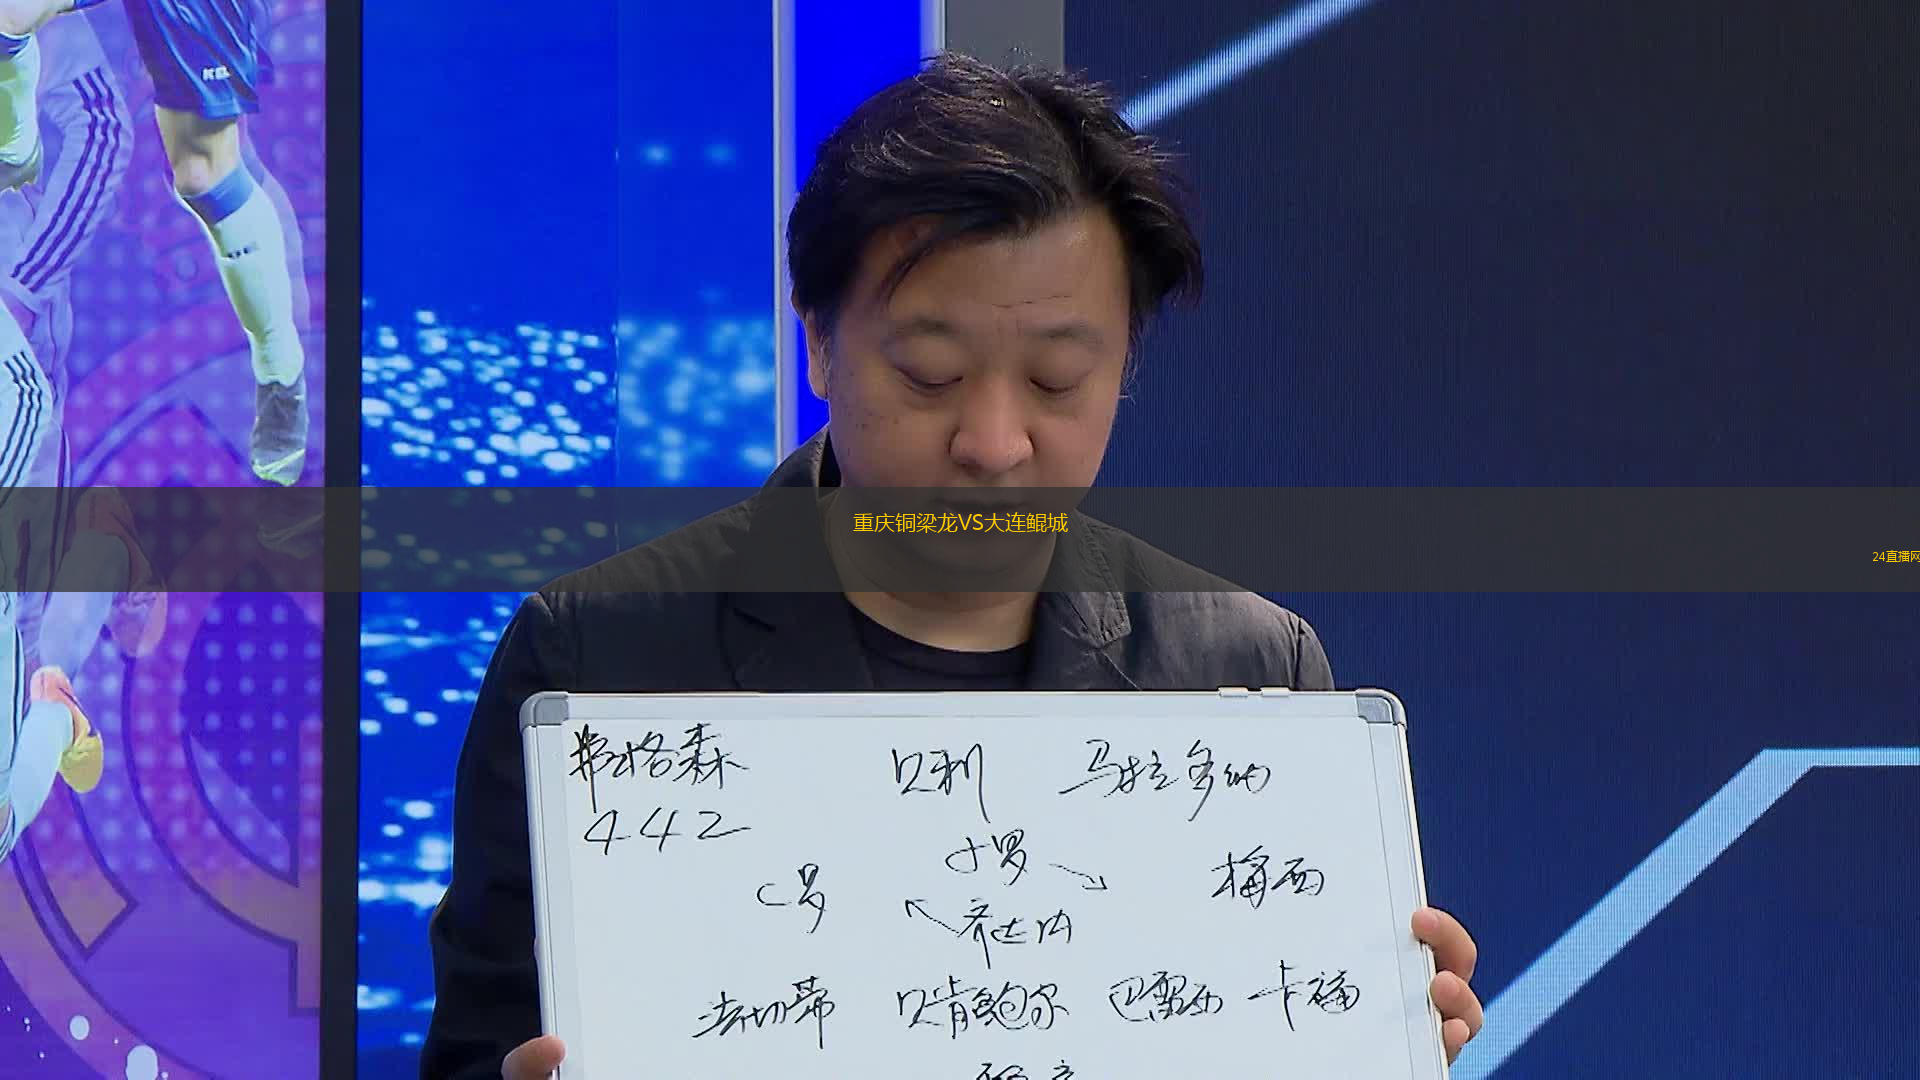 重庆铜梁龙VS大连鲲城
24直播网
弗格森 贝利 马拉多纳
442
小罗
C罗 梅西
齐达内
法切蒂 贝肯鲍尔 巴雷西 卡福